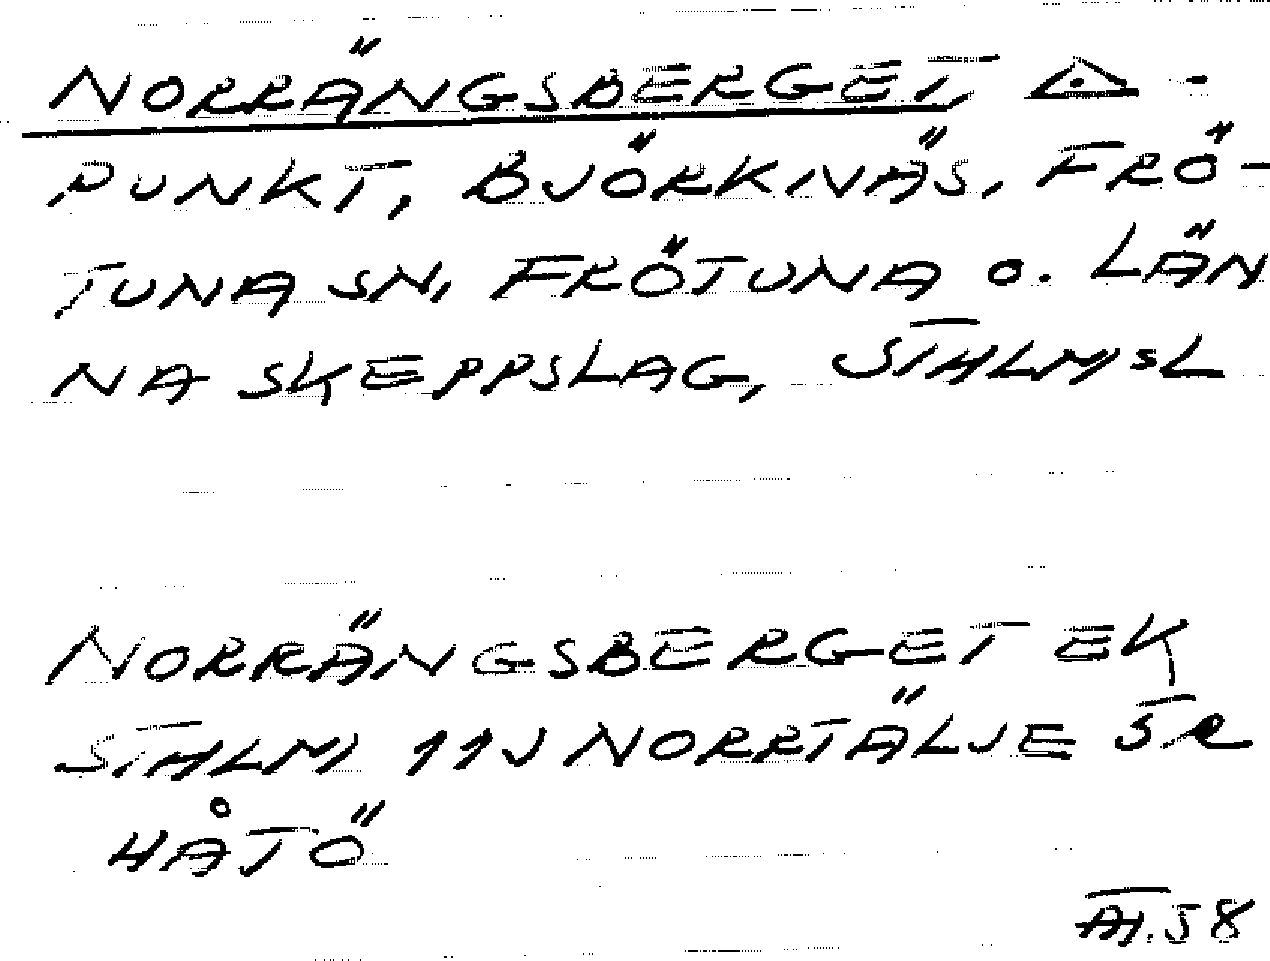 NORRÄNGSBERGET, △-
PUNKT, BJÖRKNÄS, FRÖ-
TUNA SN, FRÖTUNA o. LÄN
NA SKEPPSLAG, STHLMSL
NORRÄNGSBERGET EK
STHLM 11J NORRTÄLJE
HÅTÖ
58